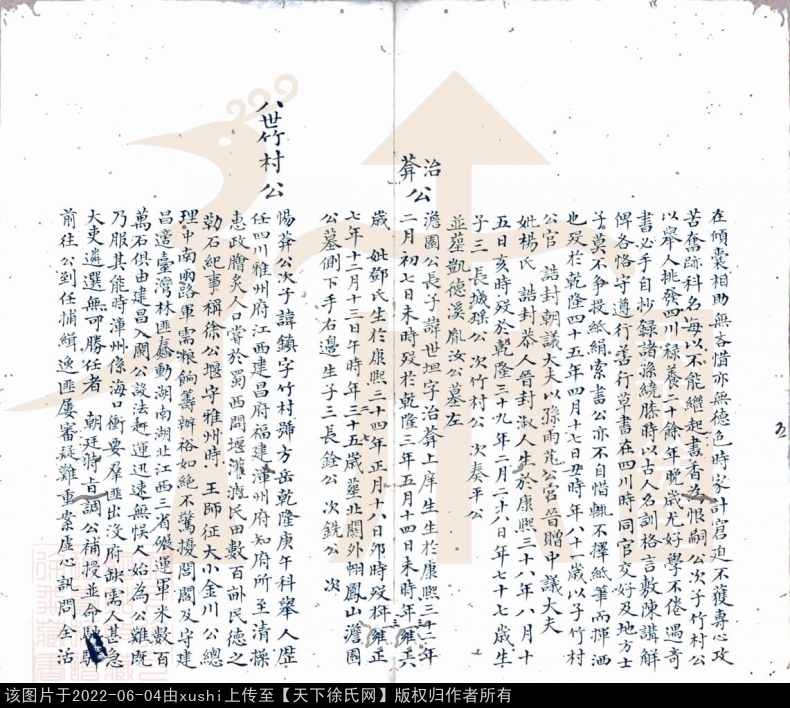 在傾囊相助無吝惜亦無德色時家計窘迫不獲專心攻
苦奮跡科名每以不能繼起書香為恨嗣公次子竹村公
以舉人挑發四川祿養二十餘年晚歲尤好學不倦遇奇
書必手自抄錄諸孫繞膝時以古人名訓格言敷陳講解
俾各恪守遵行善行草書在四川時同官交好及地方士
子莫不爭投紙絹索書公亦不自惜輒不擇紙筆而揮洒
也歿於乾隆四十五年四月十七日丑時年八十一歲以子竹村
公官 誥封朝議大夫以孫雨苑公官晉贈中議大夫
妣楊氏 誥封恭人晉封淑人生於康熙三十八年八月十
五日亥時歿於乾隆三十九年二月二十八日年七十七歲生
子三 長城璩公 次竹村公 次奏平公
並塟凱德溪胤汝公墓左
治
葬公
澹園公長子諱世坦字治葬上庠生生於康熙三十二年
二月初七日未時歿於乾隆三年五月十四日未時年四十六
歲 妣鄧氏生於康熙三十四年正月十八日卯時歿於雍正
七年十二月十三日午時年三十五歲塟北關外翱鳳山澹園
公墓側下手右邊生子三長銓公 次銑公 次
八世竹村公
惕葬公次子諱鎮字竹村號方岳乾隆庚午科舉人歷
任四川雅州府江西建昌府福建漳州府知府所至清操
惠政膾炙人口嘗於蜀西開堰灌溉民田數百畝民德之
勒石紀事稱徐公堰守雅州時 王師征大小金川公總
理中南兩路軍需糧餉籌辦裕如絕不驚擾閭閻及守建
昌適臺灣林匪蠢動湖南湖北江西三省儧運軍米數百
萬石俱由建昌入關公設法趕運迅速無悞人始為公難既
乃服其能時漳州係海口衝要羣匪出沒府缺需人甚急
大吏遴選無可勝任者 朝廷特旨調公補授並命馳驛
前往公到任捕緝逸匪屢審疑難重案虛心訊問全活
五
该图片于2022-06-04由xushi上传至【天下徐氏网】版权归作者所有